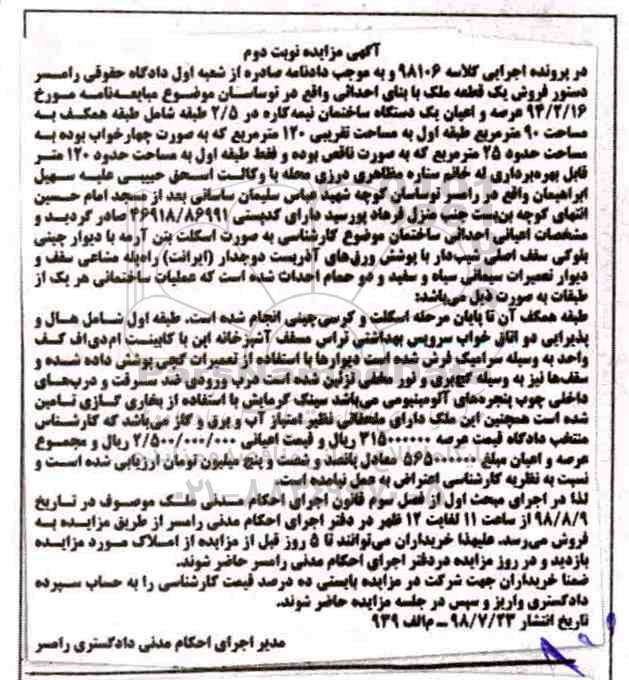 آگهی مزایده نوبت دوم
در پرونده اجرایی کلاسه ۹۸۱۰۶ و به موجب دادنامه صادره از شعبه اول دادگاه حقوقی رامسر
دستور فروش یک قطعه ملک با بنای احداثی واقع در توساسان موضوع مبایعه‌نامه مورخ
۹۴/۲/۱۶ عرصه و اعیان یک دستگاه ساختمان نیمه‌کاره در ۲/۵ طبقه شامل طبقه همکف به
مساحت ۹۰ مترمربع طبقه اول به مساحت تقریبی ۱۲۰ مترمربع که به صورت چهارخواب بوده به
مساحت حدود ۲۵ مترمربع که به صورت ناقص بوده و فقط طبقه اول به مساحت حدود ۱۲۰ متر
قابل بهره‌برداری له خانم ستاره مظاهری درزی محله با وکالت اسحق حبیبی علیه سهیل
ابراهیمان واقع در رامسر توساسان کوچه شهید عباس سلیمان ساسانی بعد از مسجد امام حسین
انتهای کوچه بن‌بست جنب منزل فرهاد پورسید دارای کدپستی ۴۶۹۱۸/۸۶۹۹۱ صادر گردید و
مشخصات اعیانی احداثی ساختمان موضوع کارشناسی به صورت اسکلت بتن آرمه با دیوار چینی
بلوکی سقف اصلی شیب‌دار با پوشش ورق‌های آذربست دوجدار (ایرانت) راه‌پله مشاعی سقف و
دیوار تعمیرات سیمانی سیاه و سفید و دو حمام احداث شده است که عملیات ساختمانی هر یک از
طبقات به صورت ذیل می‌باشد:
طبقه همکف آن تا پایان مرحله اسکلت و کرسی‌چینی انجام شده است. طبقه اول شامل هال و
پذیرایی دو اتاق خواب سرویس بهداشتی تراس مسقف آشپزخانه اپن با کابینت ام‌دی‌اف کف
واحد به وسیله سرامیک فرش شده است دیوارها با استفاده از تعمیرات گچی پوشش داده شده و
سقف‌ها نیز به وسیله گچ‌بری و نور مخفی تزئین شده است درب ورودی ضد سرقت و درب‌های
داخلی چوب پنجره‌های آلومینیومی می‌باشد سینک گرمایش با استفاده از بخاری گازی تامین
شده است همچنین این ملک دارای ملحقاتی نظیر امتیاز آب و برق و گاز می‌باشد که کارشناس
منتخب دادگاه قیمت عرصه ۳۱۵۰۰۰۰۰۰۰ ریال و قیمت اعیانی ۲/۵۰۰/۰۰۰/۰۰۰ ریال و مجموع
عرصه و اعیان مبلغ معادل پانصد و شصت و پنج میلیون تومان ارزیابی شده است و
نسبت به نظریه کارشناسی اعتراضی به عمل نیامده است.
لذا در اجرای مبحث اول از فصل سوم قانون اجرای احکام مدنی ملک موصوف در تاریخ
۹۸/۸/۹ از ساعت ۱۱ لغایت ۱۲ ظهر در دفتر اجرای احکام مدنی رامسر از طریق مزایده به
فروش می‌رسد. علیهذا خریداران می‌توانند تا ۵ روز قبل از مزایده از املاک مورد مزایده
بازدید و در روز مزایده دردفتر اجرای احکام مدنی رامسر حاضر شوند.
ضمنا خریداران جهت شرکت در مزایده بایستی ده درصد قیمت کارشناسی را به حساب سپرده
دادگستری واریز و سپس در جلسه مزایده حاضر شوند.
تاریخ انتشار ۹۸/۷/۲۳ ــ م‌الف ۹۳۹
مدیر اجرای احکام مدنی دادگستری رامسر